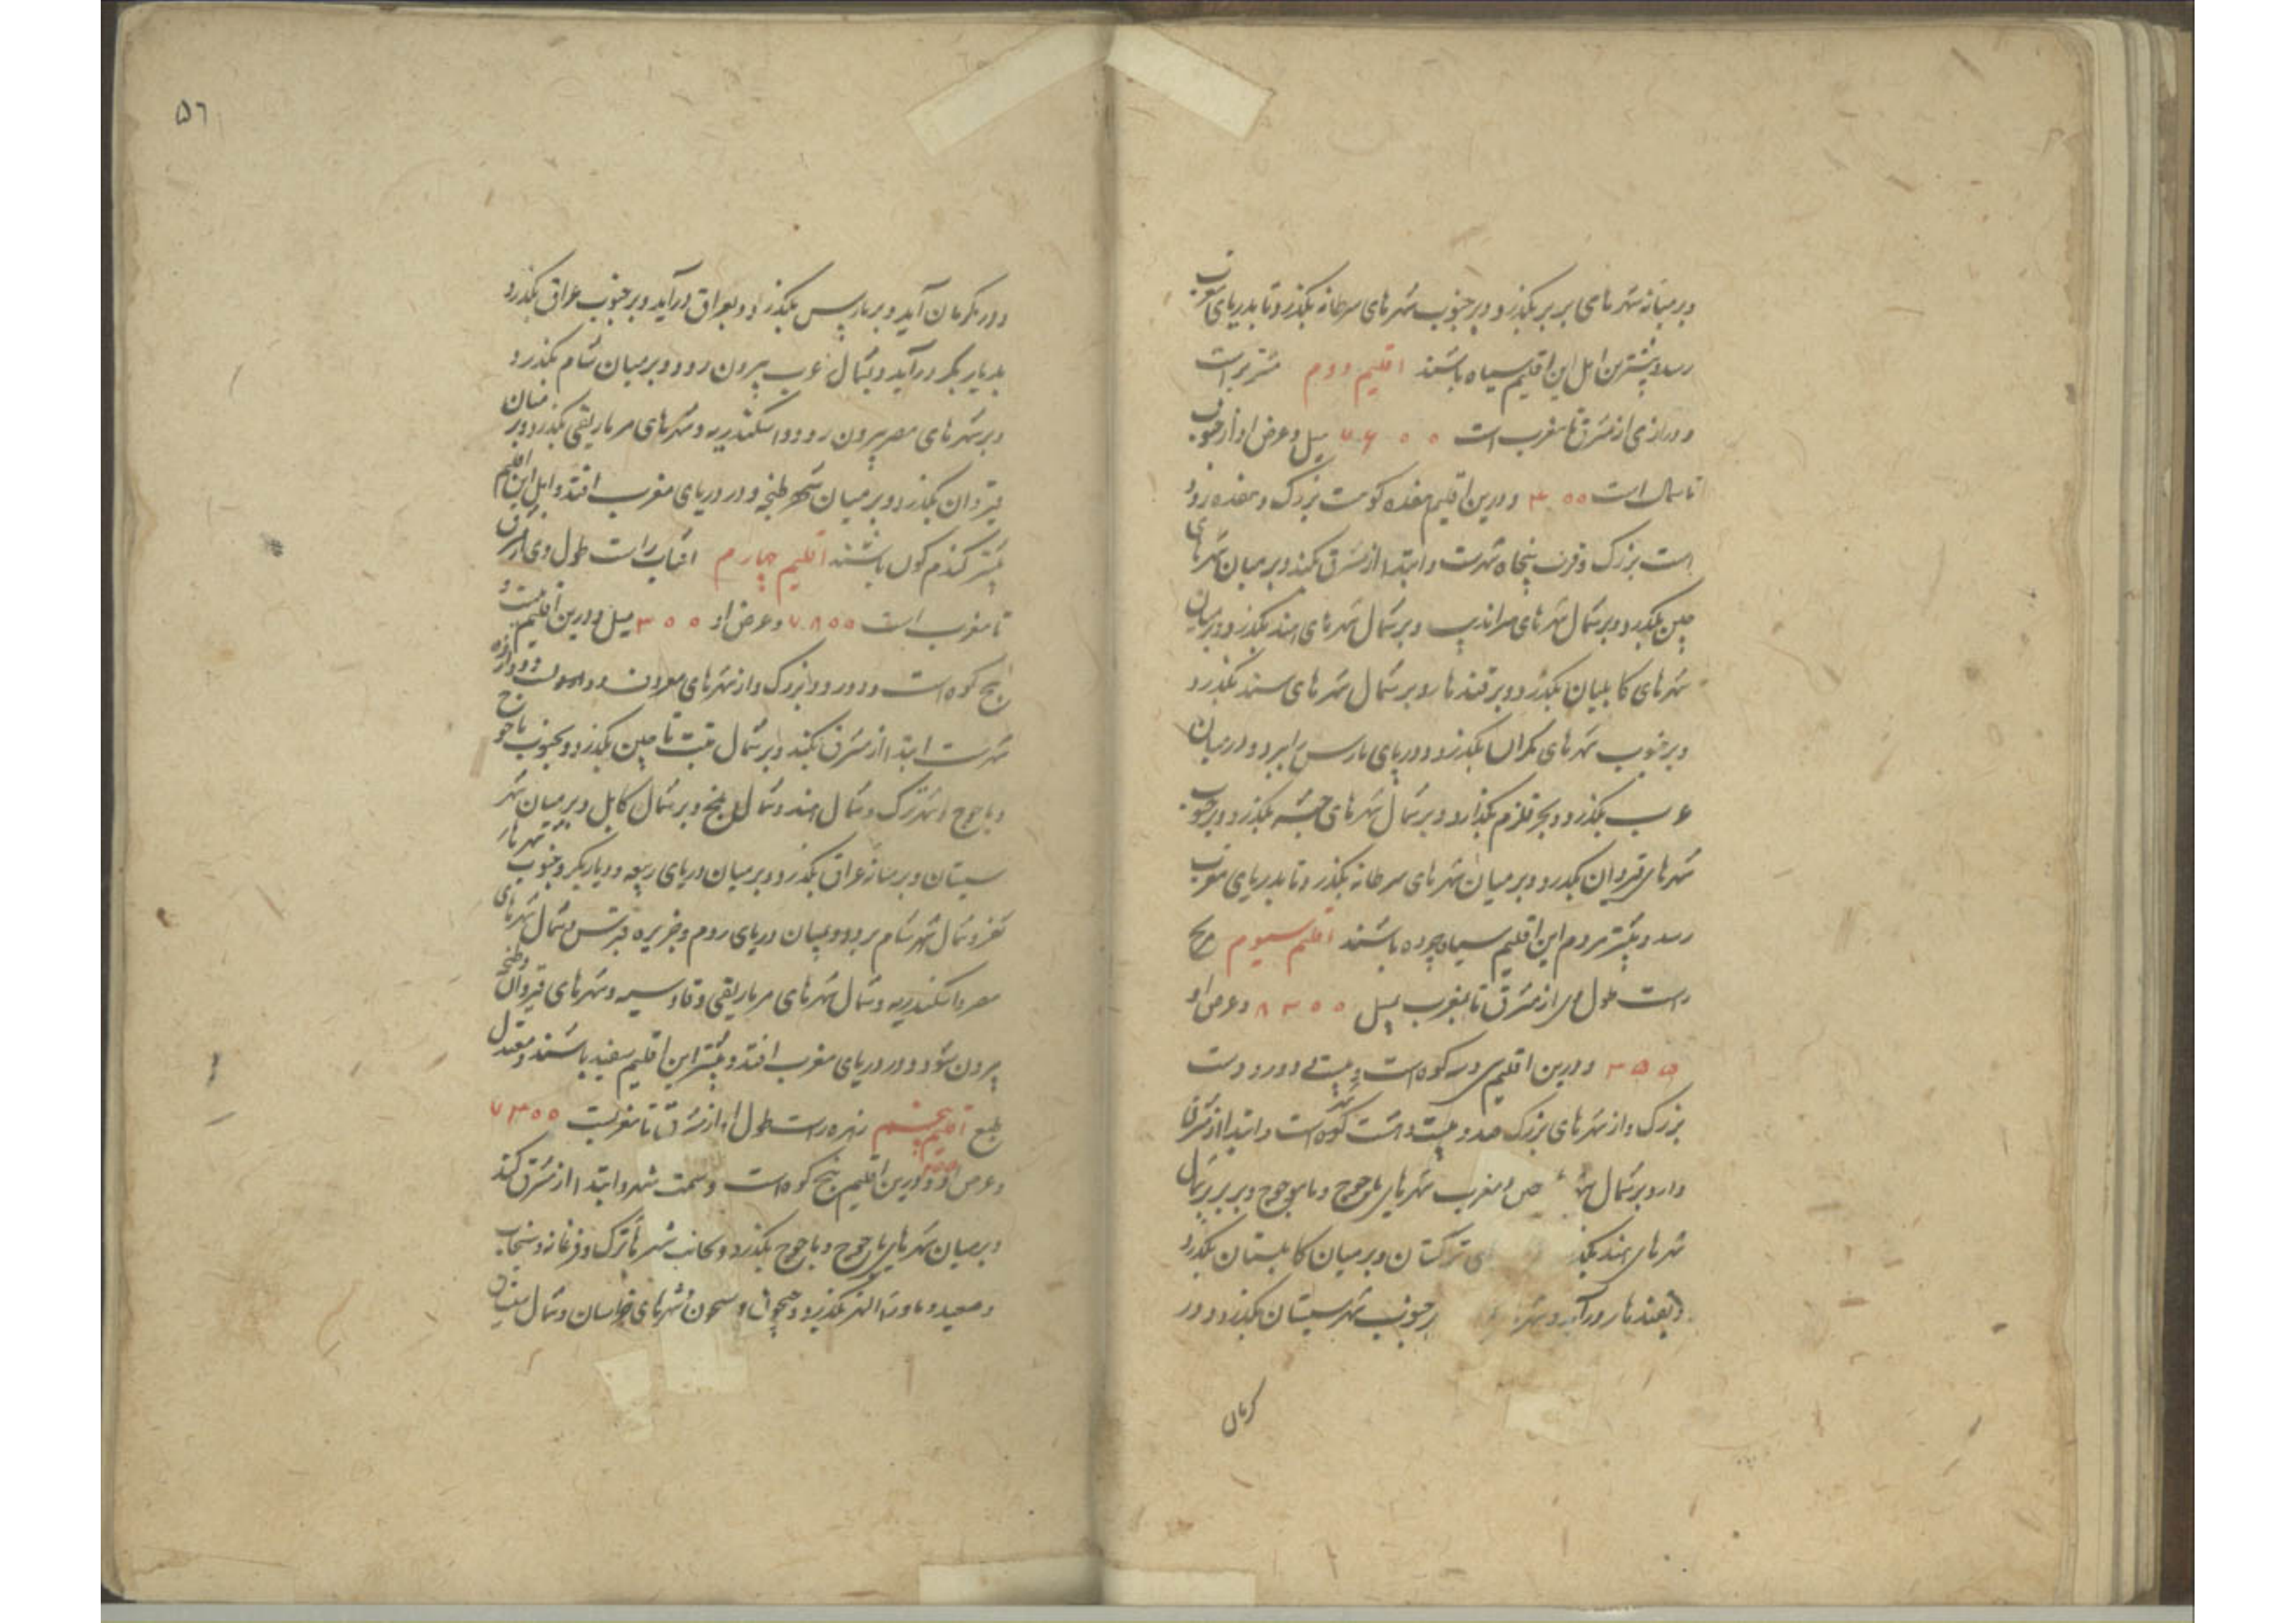 و بر میانه شهرهای بربر بگذرد و بر جنوب شهرهای سرطانه بگذرد تا بدریای مغرب
رسد و بیشترین اهل این اقلیم سیاه باشند اقلیم دوم مشتریراست
و درازی از مشرق تا مغرب است ۷۶۰۰ میل و عرض او از جنوب
تا شمال است ۴۰۰ و درین اقلیم هفده کوهست بزرگ و هفده رود
است بزرگ و پنجاه شهرست و ابتدا از مشرق کند و بر میان شهرهای
چین بگذرد و بر شمال شهرهای سراندیب و بر شمال شهرهای هند بگذرد و بر میان
شهرهای کابلیان بگذرد و بر قندهار و بر شمال شهرهای سند بگذرد
و بر جنوب شهرهای مکران بگذرد و دریای پارس را ببرد و در میان
عرب بگذرد و بحر قلزم بگذارد و بر شمال شهرهای حبشه بگذرد و بر جنوب
شهرهای قیروان بگذرد و بر میان شهرهای سرطانه بگذرد تا بدریای مغرب
رسد و بیشتر مردم این اقلیم سیاه چرده باشند اقلیم سیوم مریخ
راست طول وی از مشرق تا بمغرب میل ۸۲۰۰ و عرض او
۳۵۵ و درین اقلیم سی و سه کوه است و بیست و دو رودست
بزرگ و از شهرهای بزرگ صد و بیست و هشت است و ابتدا از مشرق
دارد بر شمال و مغرب شهرهای یاجوج و ماجوج و بر شمال
شهرهای هند ترکستان و بر میان کابلستان بگذرد
و بقندهار درآید بر جنوب شهر سیستان بگذرد و در
کرمان
۵۶
و در کرمان آید و بر پارس بگذرد و بعراق درآید و بر جنوب عراق بگذرد
بدیار بکر درآید و بشمال عرب بیرون رود و بر میان شام بگذرد
و بر شهرهای مصر بیرون رود و اسکندریه و شهرهای مرماریقی بگذرد و بر میان
قیروان بگذرد و بر میان شهر طنجه و در دریای مغرب افتد و اهل این اقلیم
بیشتر گندم گون باشند اقلیم چهارم آفتاب راست طول وی از مشرق
تا مغرب است ۷۸۰۰ و عرض او ۳۰۰ میل و درین اقلیم بیست و
پنج کوه است و دو رود بزرگ و از شهرهای معروف دوازده
شهرست ابتدا از مشرق کند و بر شمال تبت تا چین بگذرد و بجنوب یاجوج
و ماجوج و شهر ترک و شمال هند و شمال بلخ و بر شمال کابل و بر میان شهر
سیستان و بر میانه عراق بگذرد و بر میان دریای ربیعه و دیاربکر و جنوب شهرهای
ثغر و شمال شهر شام برود و بمیان دریای روم و جزیره قبرس و شمال شهرهای
مصر و اسکندریه و شمال شهرهای مرماریقی و قادسیه و شهرهای قیروان و طنجه
بیرون شود و در دریای مغرب افتد و بیشتر این اقلیم سفید باشند و معتدل
طبع اقلیم پنجم زهره راست طول او از مشرق تا مغربست ۷۳۰۰
و عرض او و درین اقلیم پنج کوه است و شهر و ابتدا از مشرق کند
و بر میان شهرهای یاجوج و ماجوج بگذرد و بجانب شهر ترک و فرغانه و سنجاب
و ماورا النهر بگذرد و جیحون و سیحون و شهرهای خراسان و شمال سیستان